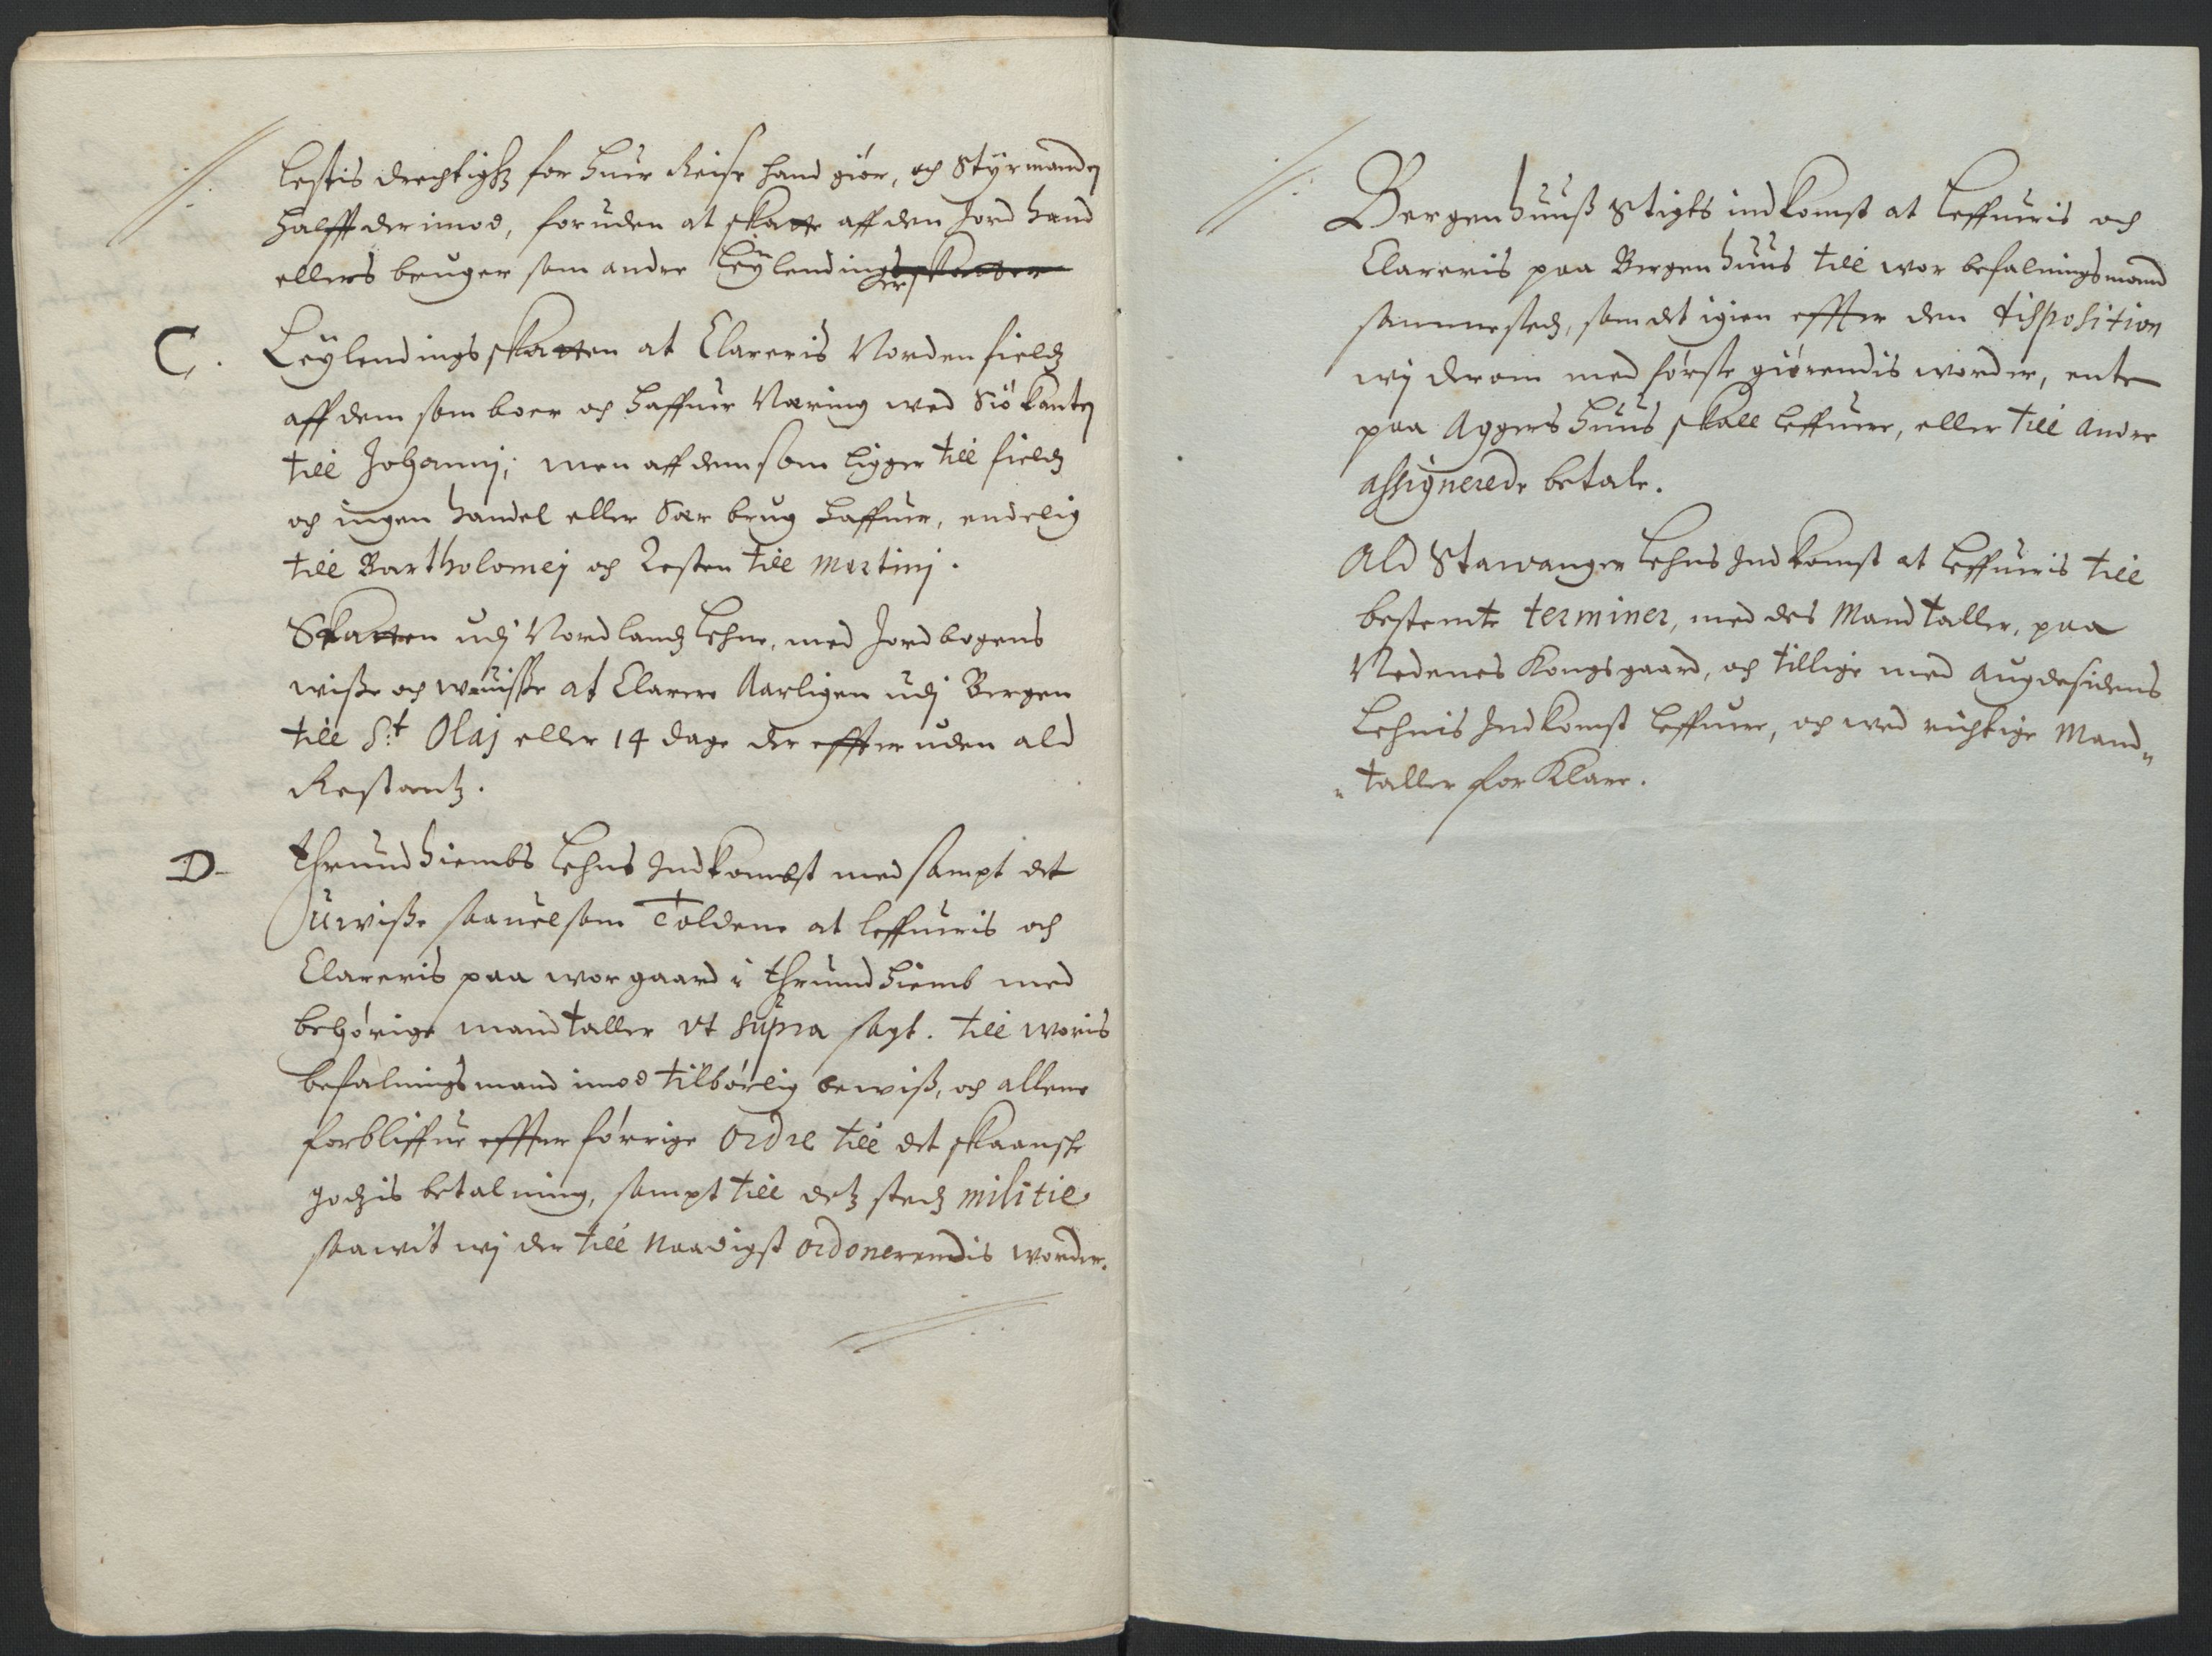 lestis drechtighz for huer Reise hand giør, och Styrmanden
halfft der imod, foruden at skatte aff den Jord hand
ellers bruger som andre Leylendinger
C. Leylendings skatten at Clareris Nordenfieldz
aff dem som boer och haffuer Næring wed Siö kanten
till Johannj; men aff dem som ligger till fieldz
och ingen handel eller Sær brug haffuer, endelig
till Bartholomej och Resten till Martinj.
Skatten udj Nordlandz Lehne, med Jordbogens
wisse och wuisse at Clarere Aarligen udj Bergen
till St Olaj eller 14 dage der effter uden ald
Restantz.
D- Thrundhiembs Lehns Indkombst med sampt det
Uwisse saauelsom Tolderne at leffueris och
Clareris paa wor gaard i Thrundhiemb med
behørige mandtaller vt supra sagt. till woris
befalningsmand imod tilbørlig bewiss, och allene
forbliffue effter førrige Ordre till det skaanske
godzis betalning, sampt till detz stedz militie
saawit wj der till Naadigst ordonerendis worder.
Bergenhuuss Stigts indkomst at Leffueris och
Clareris paa Bergenhuus till wor befalningsmand
sammestedz, som det igien effter den disposition
wj derom med første giørendis worder, enten
paa Aggershuus skall Leffuere, eller till andre
assignerede betale.
Ald Stawanger Lehns Indkomst at Leffueris till
bestemte terminer, med des Mandtaller, paa
Nedenes Kongsgaard, och tillige med Augdesidens
Lehnis Indkomst leffuere, och wed richtige Mand„
„taller forKlare.